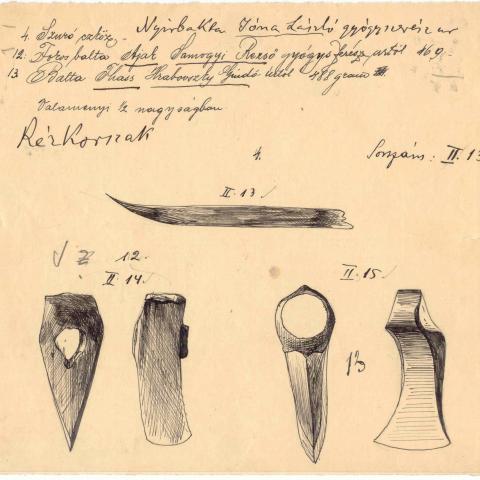 4. Szuró eszköz. Nyirbakta Jóna László gyógyszerész ur
12. Fokosbalta Ajak Somogyi Rezső gyógyszerész
13 Balta Thass Hrabovszky Guidó 488 gramm
Valamennyi ½ nagyságban
Rézkorszak
4. Sorszám: II. 13
II. 13
12.
II. 14
II. 15
13